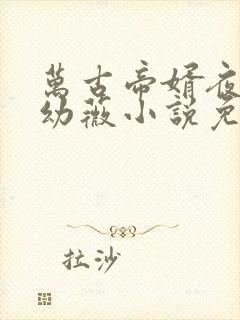 萬古帝婿夜
幼薇小說免
拉沙